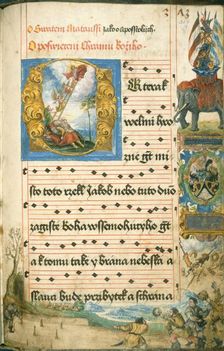 O Swatem Mataussi Jako o aposstolich.
O poswieceni Chramu božiho
Kterak
welmi hro
zne gt mi
sto toto rzekl Jakob nebo tuto dwo
ragistie boha wssemohuczyho gt
a k tomu take y brana nebeska a
slawa bude przibytek a schrana